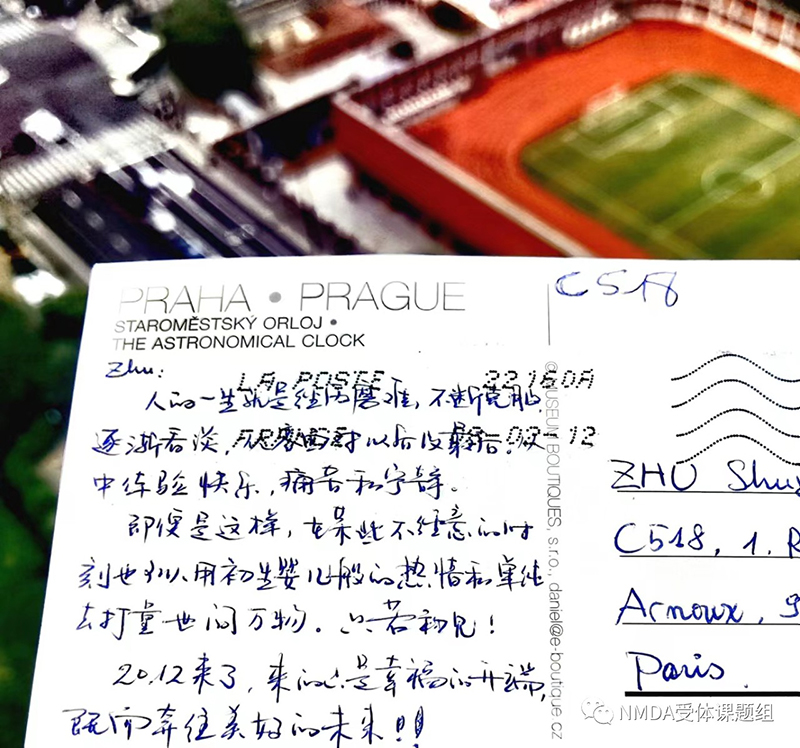 PRAHA • PRAGUE
STAROMĚSTSKÝ ORLOJ •
THE ASTRONOMICAL CLOCK
C518
Zhu:
LA POSTE 22160A
人的一生就是经历磨难，不断克服，
逐渐看淡，
02-12
中体验快乐，痛苦和宁静。
即便是这样，在某些不经意的时
刻也可以用初生婴儿般的热情和单纯
去打量世间万物。只若初见！
2012来了，来的只是幸福的开端，
既而奔往美好的未来！！
© MUSEUM BOUTIQUES, s.r.o., daniel@e-boutique.cz
ZHU
C518, 1.
Arnoux,
Paris
NMDA受体课题组